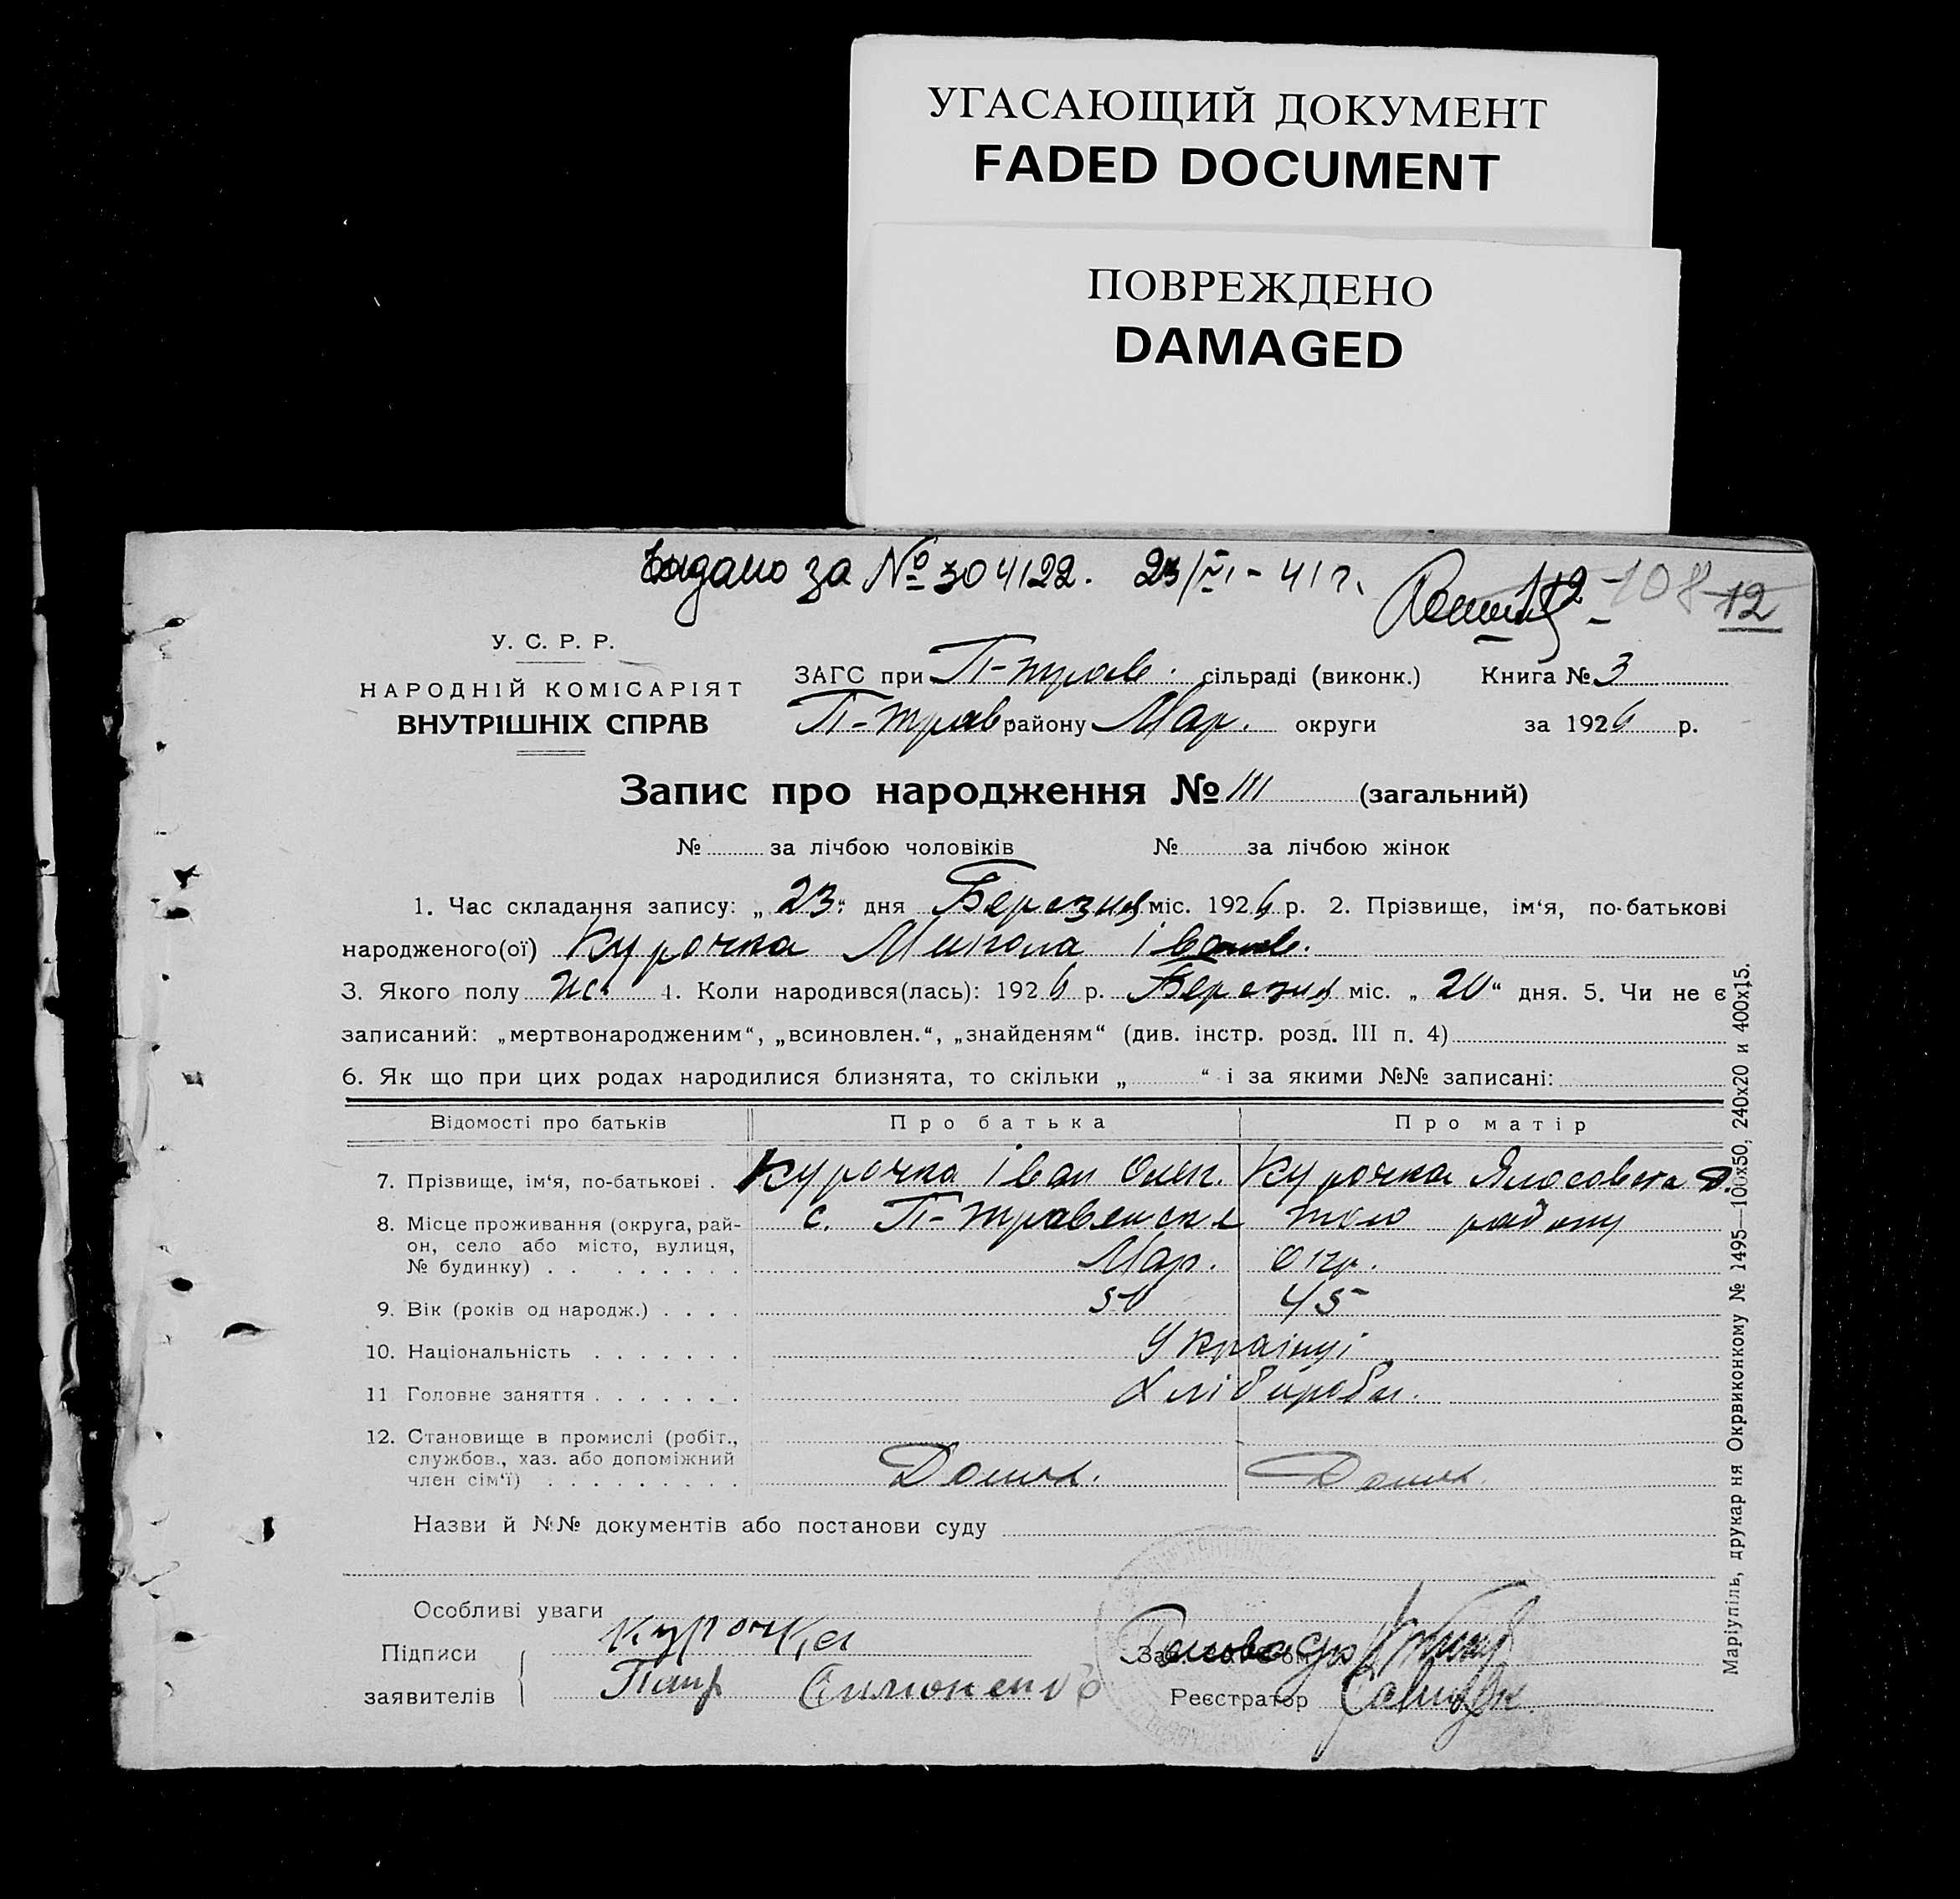 УГАСАЮЩИЙ ДОКУМЕНТ
FADED DOCUMENT
ПОВРЕЖДЕНО
DAMAGED
Видано за № 304122. 23/VI-41 г.
108 12
У. С. Р. Р.
НАРОДНІЙ КОМІСАРІЯТ
ВНУТРІШНІХ СПРАВ
ЗАГС при П-трав. сільраді (виконк.) Книга № 3
П-трав району Мар. округи за 1926 р.
Запис про народження № 111 (загальний)
№ за лічбою чоловіків № за лічбою жінок
1. Час складання запису: „23“ дня Березня міс. 1926 р. 2. Прізвище, ім‘я, по-батькові
народженого(ої) Курочка Микола Іванов.
3. Якого полу 4. Коли народився(лась): 1926 р. Березня міс. „20“ дня. 5. Чи не є
записаний: „мертвонародженим“, „всиновлен.“, „знайденям“ (див. інстр. розд. III п. 4)
6. Як що при цих родах народилися близнята, то скільки „ “ і за якими №№ записані:
Відомості про батьків Про батька Про матір
7. Прізвище, ім‘я, по-батькові . Курочка Іван Олек. Курочка Ялосовета Д.
8. Місце проживання (округа, рай-
он, село або місто, вулиця,
№ будинку) . . . . . . . . .
с. П-Травенське того району
Мар. окр.
9. Вік (років од народж.) . . . . 50 45
10. Національність . . . . . . . Українці
11 Головне заняття . . . . . . . Хлібороби.
12. Становище в промислі (робіт.,
службов., хаз. або допоміжний
член сім‘ї) . . . . . . . . .
Назви й №№ документів або постанови суду
Особливі уваги
Підписи
заявителів
Курочка
Симоненко
Голова
Реєстратор
Маріупіль, друкарня Окрвиконкому № 1495—100х50, 240х20 и 400х15.